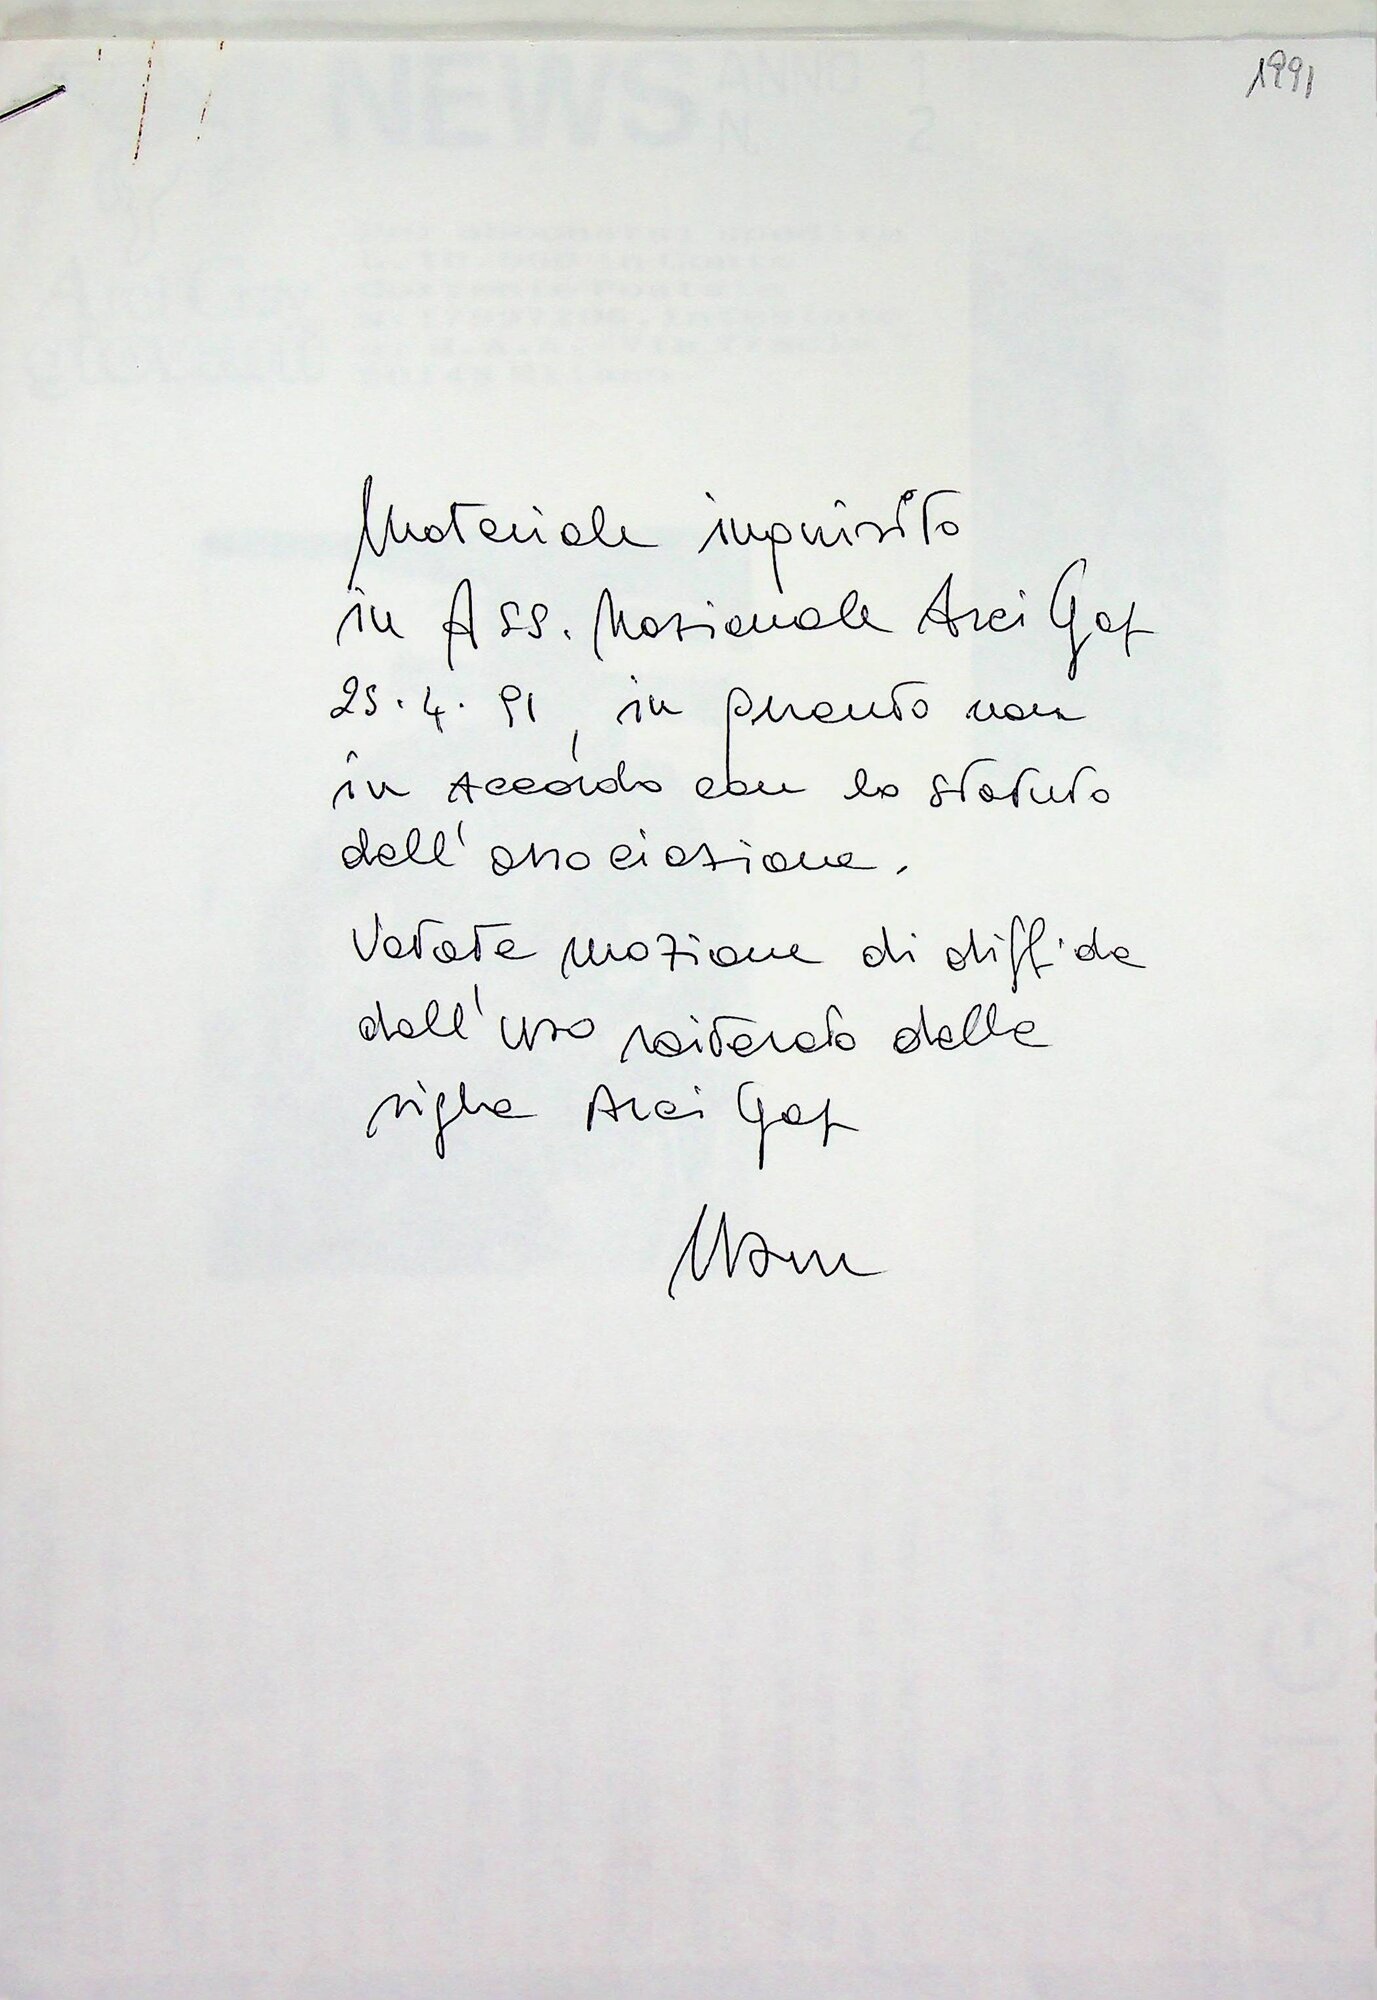 1991
NEWS ANNO
N. 2
Materiale inquisito
in Ass. Nazionale Arci Gay
25.4.91, in quanto non
in accordo con lo statuto
dell'associazione.
Votata mozione di diffida
dall'uso reiterato della
sigla Arci Gay
ARCI GAY GIOVANI